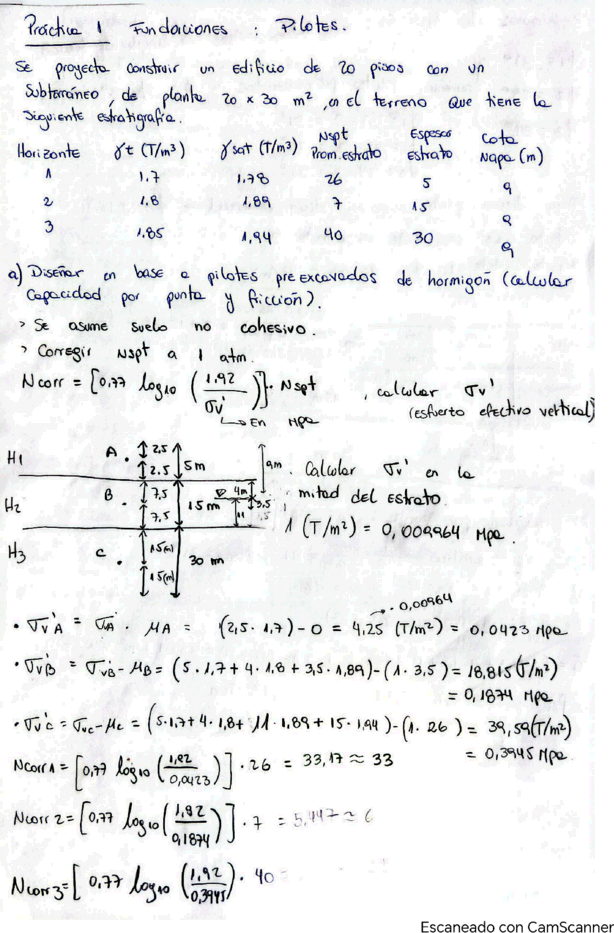 Práctica 1 Fundaciones : Pilotes.
Se proyecta construir un Edificio de 20 pisos con un
Subterráneo, de planta 20 x 30 m², en el terreno que tiene la
siguiente estratigrafía.
Horizonte γt (T/m³) γsat (T/m³) Nspt Prom. estrato Espesor estrato Cota Napa (m)
1 1.7 1,78 26 5 9
2 1.8 1,89 7 15 9
3 1.85 1,94 40 30 9
a) Diseñar en base a pilotes preexcavados de hormigón (calcular
Capacidad por punta y fricción).
> Se asume suelo no cohesivo.
> Corregir Nspt a 1 atm.
Ncorr = [0,77 log10 (1,92/σv')] · Nspt , calcular σv'
(esfuerto efectivo vertical)
↳ En Mpa
H1 A . 2,5 5m 9m . Calcular σv' en la
2.5
H2 B . 7,5 15m 4m 3.5 mitad del estrato.
7,5 11
1 (T/m²) = 0,009964 Mpa.
H3 C . 15(m) 30 m
15(m)
· 0,00964
• σv'A = σA · μA = (2,5 · 1,7) - 0 = 4,25 (T/m²) = 0,0423 Mpa
• σv'B = σvB - μB = (5 · 1,7 + 4 · 1,8 + 3,5 · 1,89) - (1 · 3,5) = 18,815 (T/m²)
= 0,1874 Mpa
• σv'c = σvc - μc = (5·1,7 + 4·1,8 + 11·1,89 + 15·1,94) - (1· 26) = 39,59 (T/m²)
= 0,3945 Mpa
Ncorr1 = [0,77 log10 (1,92/0,0423)] · 26 = 33,17 ≈ 33
Ncorr2 = [0,77 log10 (1,92/0,1874)] · 7 = 5,447 ≈ 6
Ncorr3 = [0,77 log10 (1,92/0,3945) · 40 =
Escaneado con CamScanner